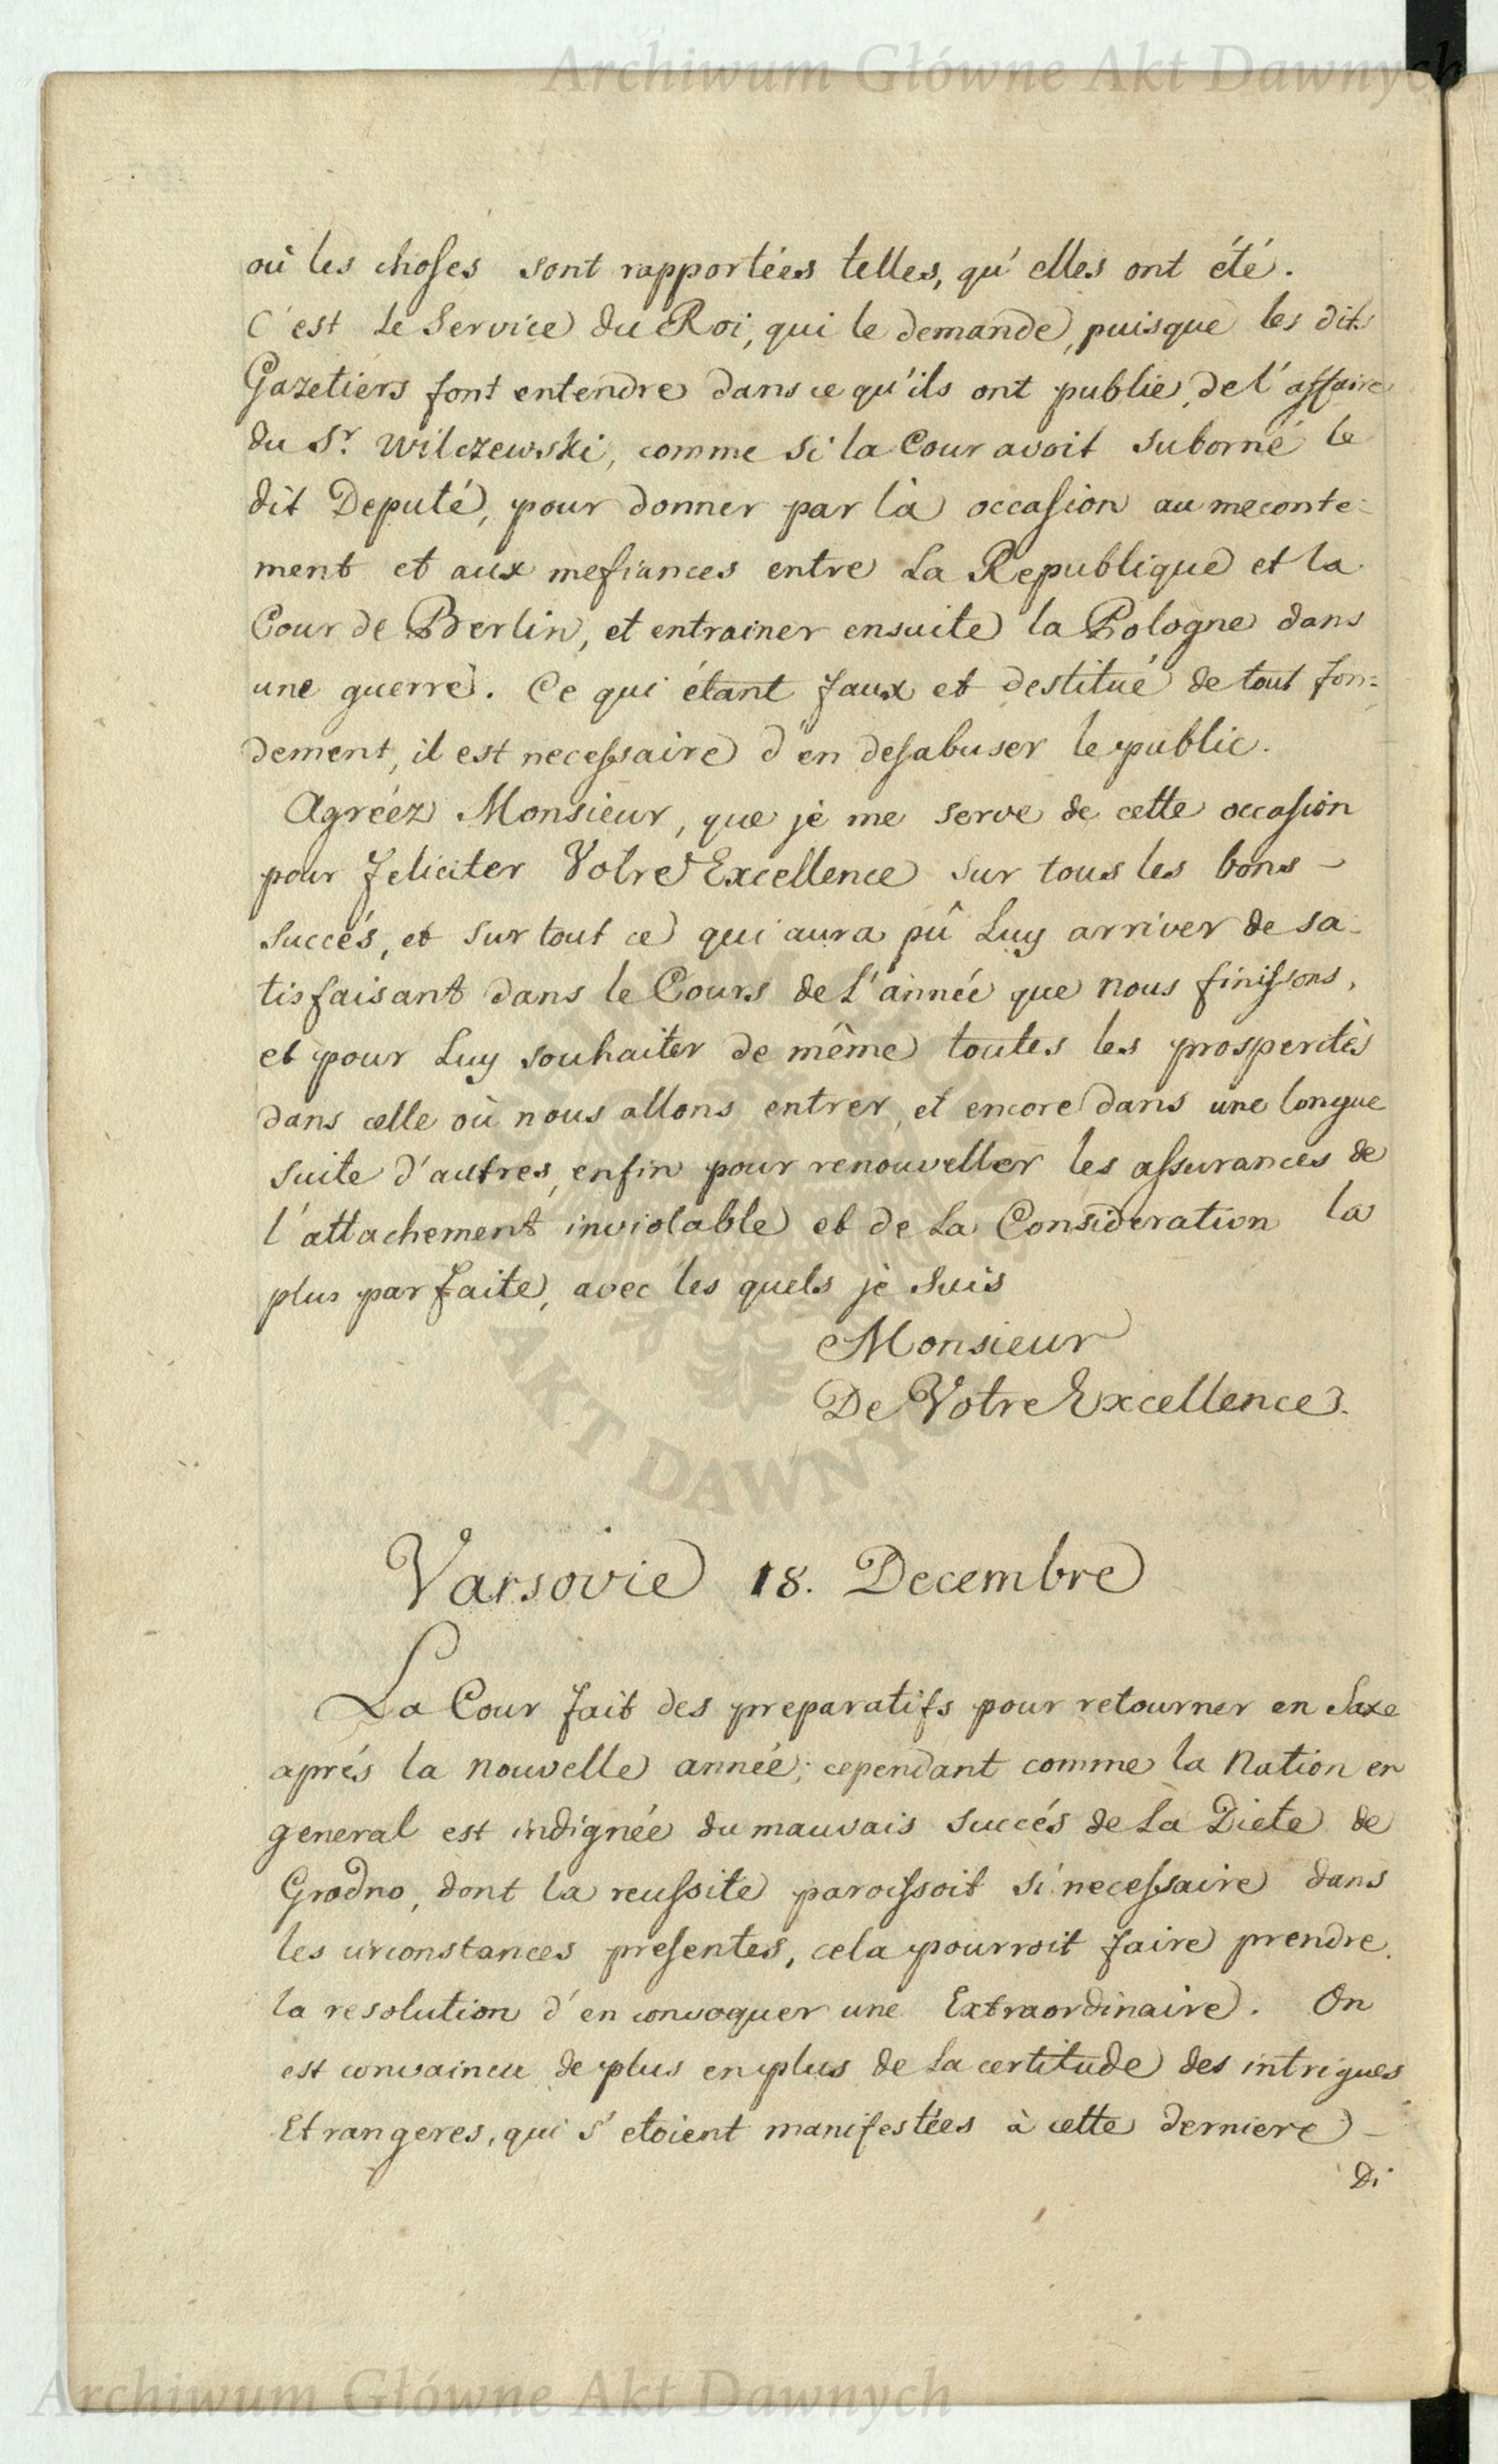 Archiwum Główne Akt Dawnych
où les choses sont rapportées telles, qu'elles ont été.
C'est Le Service du Roi, qui le demande, puisque les dits
Gazetiers font entendre dans ce qu'ils ont publié, de l'affaire
du Sr. Wilczewski, comme si la Cour avoit suborné le
dit Deputé, pour donner par là occasion au meconte-
ment et aux mefiances entre La Republique et la
Cour de Berlin, et entrainer ensuite la Pologne dans
une guerre. Ce qui étant faux et destitué de tout fon-
dement, il est necessaire d'en desabuser le public.
Agréez Monsieur, que je me serve de cette occasion
pour feliciter Votre Excellence sur tous les bons
succés, et sur tout ce qui aura pû Luy arriver de sa-
tisfaisant dans le Cours de L'année que nous finissons,
et pour Luy souhaiter de même toutes les prosperités
dans celle où nous allons entrer, et encore dans une longue
suite d'autres, enfin pour renouveller les assurances de
l'attachement inviolable et de La Consideration la
plus parfaite, avec les quels je suis
Monsieur
De Votre Excellence.
AKT DAWNYCH
Varsovie 18. Decembre
La Cour fait des preparatifs pour retourner en Saxe
aprés la nouvelle année; cependant comme la Nation en
general est indignée du mauvais succés de La Diete de
Grodno, dont la reussite paroissoit si necessaire dans
les circonstances presentes, cela pourroit faire prendre
la resolution d'en convoquer une Extraordinaire. On
est convaincu de plus en plus de La certitude des intrigues
Etrangeres, qui s'etoient manifestées à cette derniere
Di
Archiwum Główne Akt Dawnych